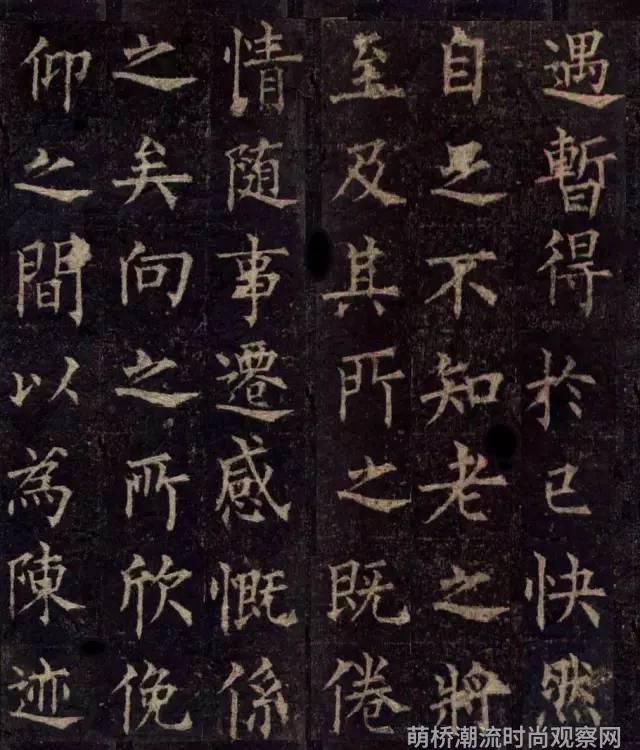 遇暫得於己快然
自足不知老之將
至及其所之既倦
情隨事遷感慨係
之矣向之所欣俛
仰之間以為陳迹
萌桥潮流时尚观察网